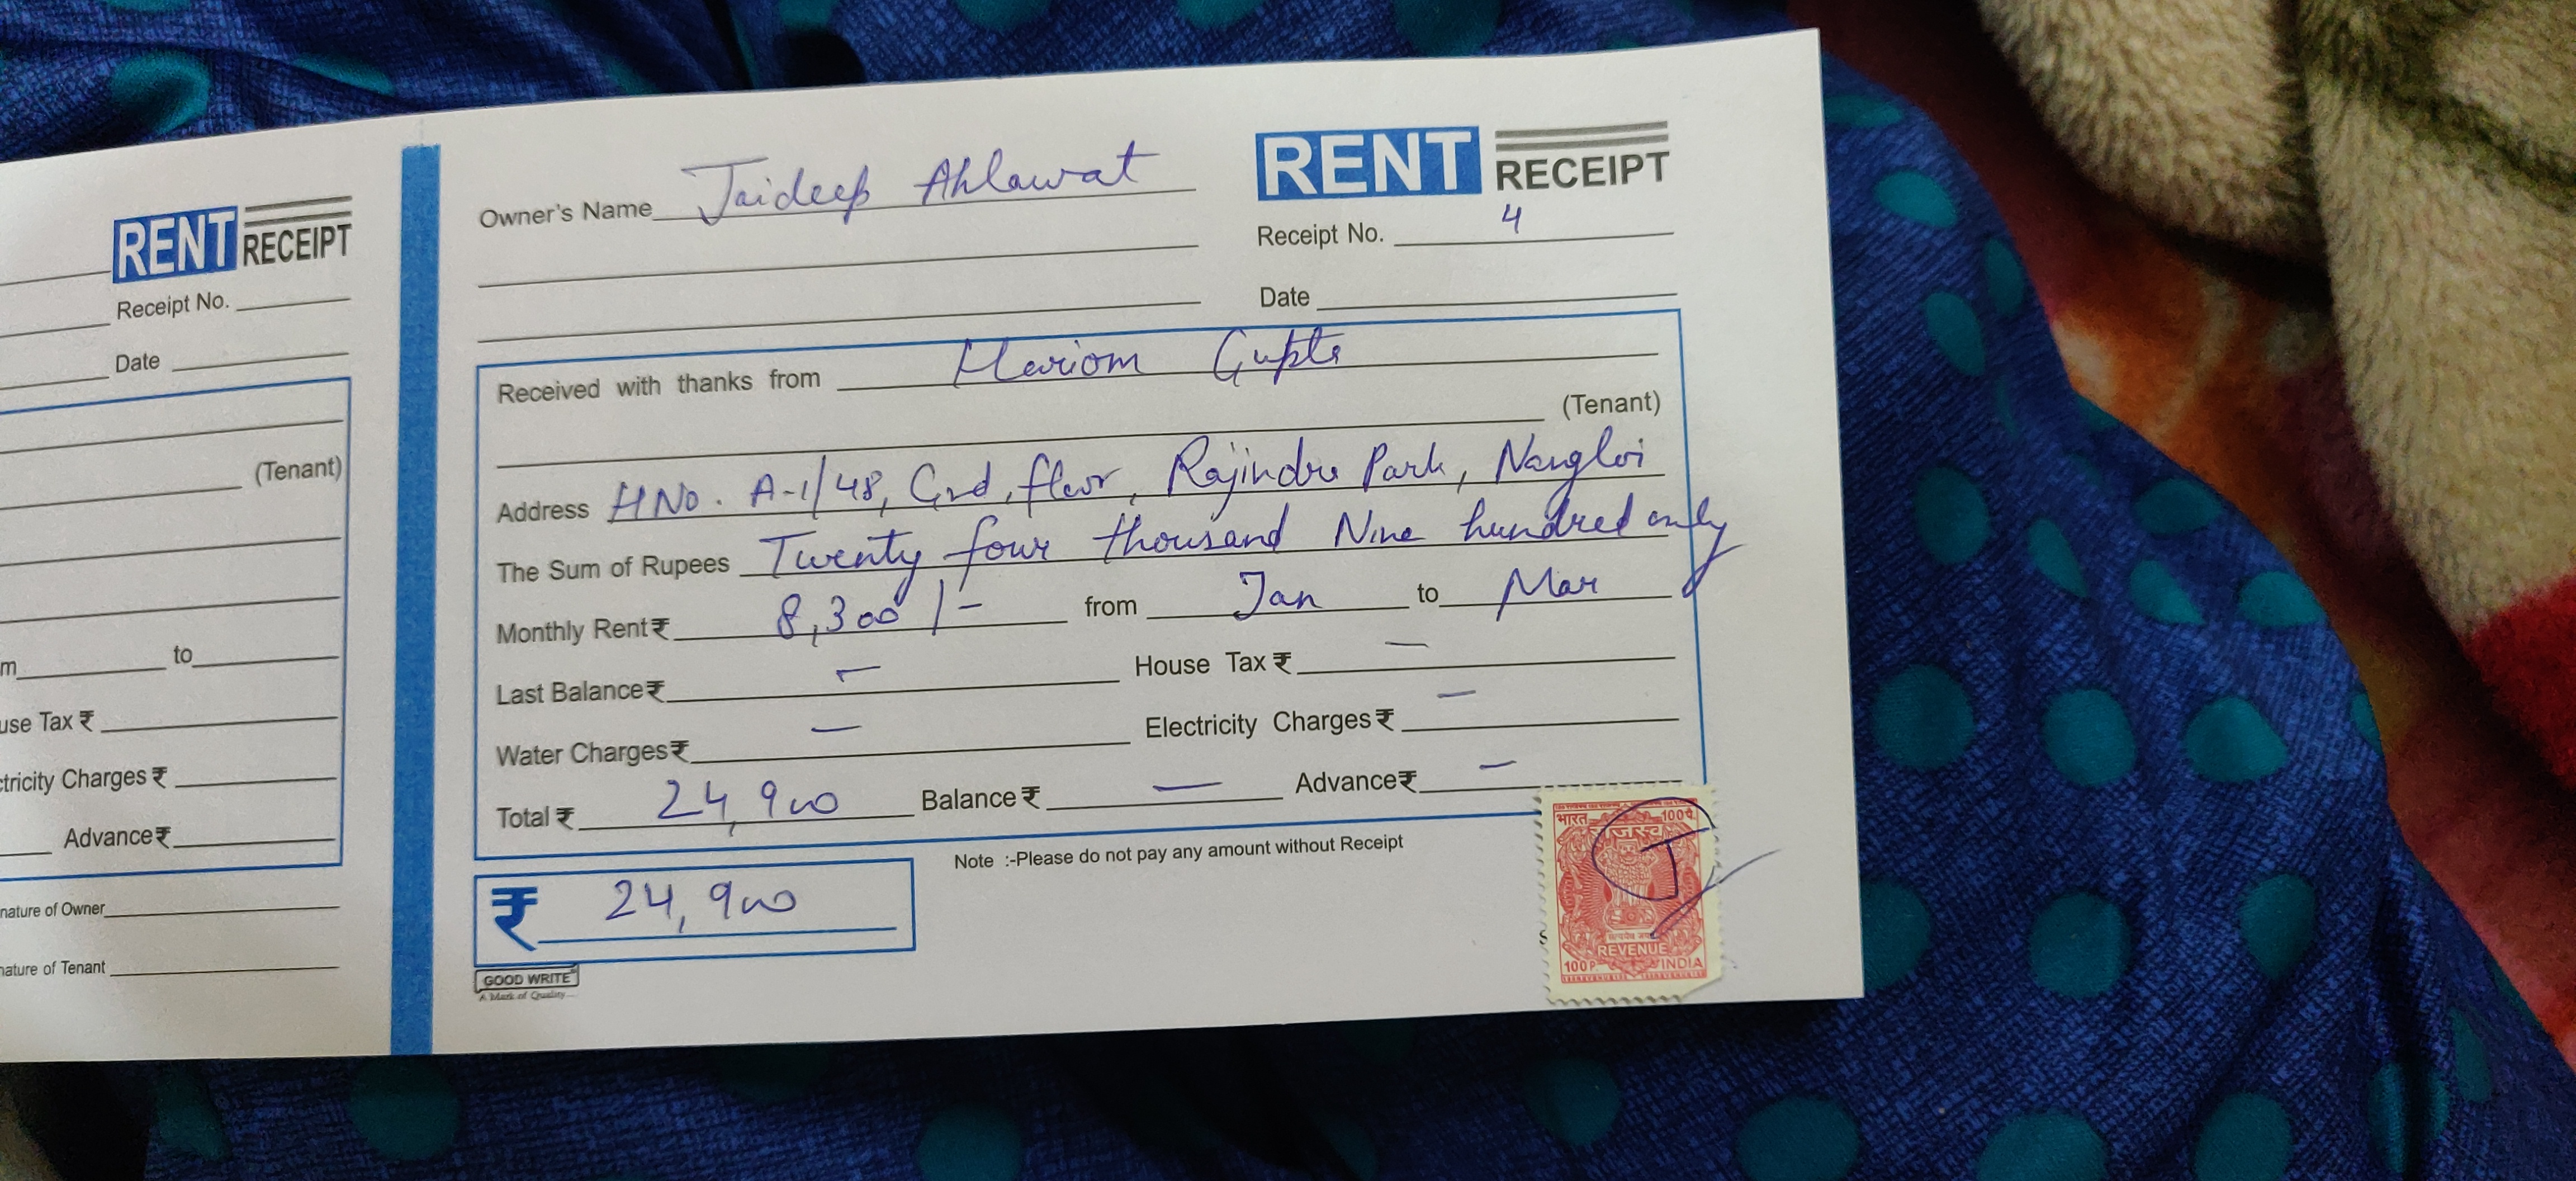 RENT RECEIPT
Receipt No.
Date
(Tenant)
m to
use Tax ₹
ctricity Charges ₹
Advance₹
nature of Owner
nature of Tenant
RENT RECEIPT
Owner's Name Jaideep Ahlawat Receipt No. 4
Date
Received with thanks from Hariom Gupta
(Tenant)
Address HNo. A-1/48, Grd, floor, Rajindra Park, Nangloi
The Sum of Rupees Twenty four thousand Nine hundred only
Monthly Rent₹ 8,300/- from Jan to Mar
Last Balance₹ - House Tax ₹ -
Water Charges₹ - Electricity Charges₹ -
Total ₹ 24,900 Balance ₹ - Advance₹ -
₹ 24,900
Note :-Please do not pay any amount without Receipt
GOOD WRITE
A Mark of Quality
भारत 100प
REVENUE
100P INDIA